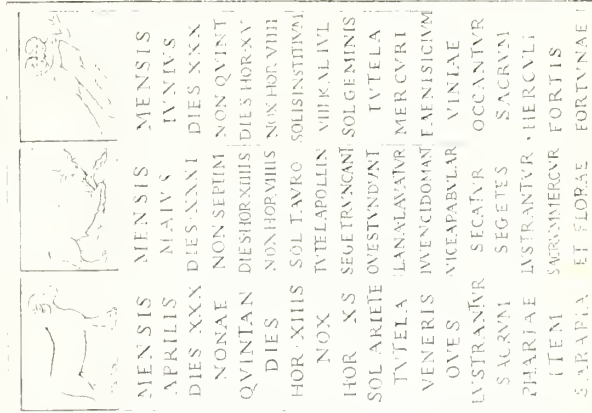 MENSIS
APRILIS
DIES XXX
NONAE
QVINTAN
DIES
HOR · XIIIS
NOX
HOR XS
SOL ARIETE
TVTELA
VENERIS
OVES
LVSTRANTVR
SACRVM
PHARIAE
ITEM
SARAPIA
MENSIS
MAIVS
DIES·XXXI
NON SEPTIM
DIES·HOR·XIIIIS
NOX·HOR·VIIIIS
SOL TAVRO
TVTELAPOLLIN
SEGETRVNCANT
OVESTVNDVNT
LANALAVATVR
IVVENCIDOMANT
VICEAPABVLAR
SECATVR
SEGETES
LVSTRANTVR
SACRVMMERCVR
ET FLORAE
MENSIS
IVNIVS
DIES XXX
NON QVINT
DIES HOR·XV
NOX HOR VIIII
SOLISINSTITIVM
VIII KAL IVL
SOL GEMINIS
TVTELA
MERCVRI
FAENISICIVM
VINIAE
OCCANTVR
SACRVM
HERCVLI
FORTIS
FORTVNAE